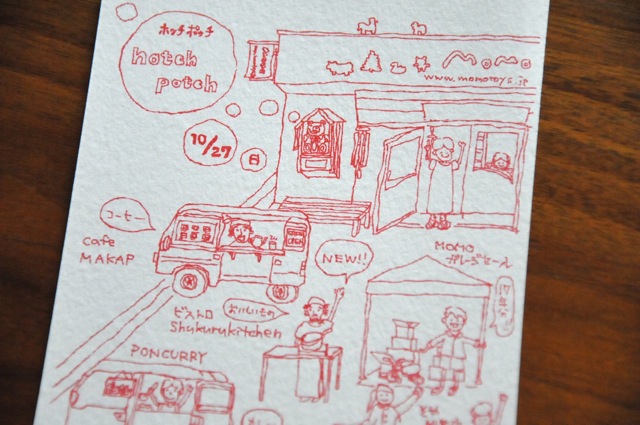 ホッチポッチ
hotch
potch
momo
www.momotoys.jp
10/27
日
コーヒー
cafe
MAKAP
NEW!!
MOMO
ガレージセール
ビストロ
おいしいもの
Shukurukitchen
PONCURRY